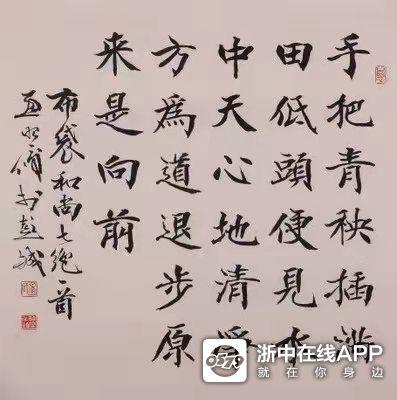 手把青秧插滿
田低頭便見水
中天心地清淨
方爲道退步原
来是向前
布袋和尚七絕一首
书彭城
浙中在线APP
就在你身边